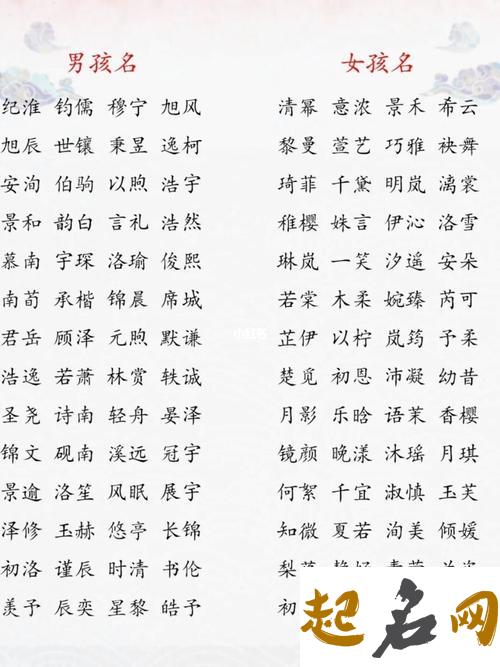 男孩名 女孩名
纪淮 钧儒 穆宁 旭风 清幂 意浓 景禾 希云
旭辰 世镶 秉昱 逸柯 黎曼 萱艺 巧雅 袂舞
安洵 伯驹 以煦 浩宇 琦菲 千黛 明岚 漓裳
景和 韵白 言礼 浩然 稚樱 姝言 伊沁 洛雪
慕南 宇琛 洛瑜 俊熙 琳岚 一笑 汐遥 安朵
南荀 承楷 锦晨 席城 若棠 木柔 婉臻 芮可
君岳 顾泽 元煦 默谦 芷伊 以柠 岚筠 予柔
浩逸 若萧 林赏 轶诚 楚觅 初恩 沛凝 幼昔
圣尧 诗南 轻舟 晏泽 月影 乐晗 语茉 香樱
锦文 砚南 溪远 冠宇 镜颜 晚漾 沐瑶 月琪
景逾 洛笙 风眠 展宇 何絮 千宜 淑慎 玉芙
泽修 玉赫 悠亭 长锦 知微 夏若 洵美 倾媛
初洛 谨辰 时清 书伦
羡予 辰奕 星黎 皓予 初
起名网